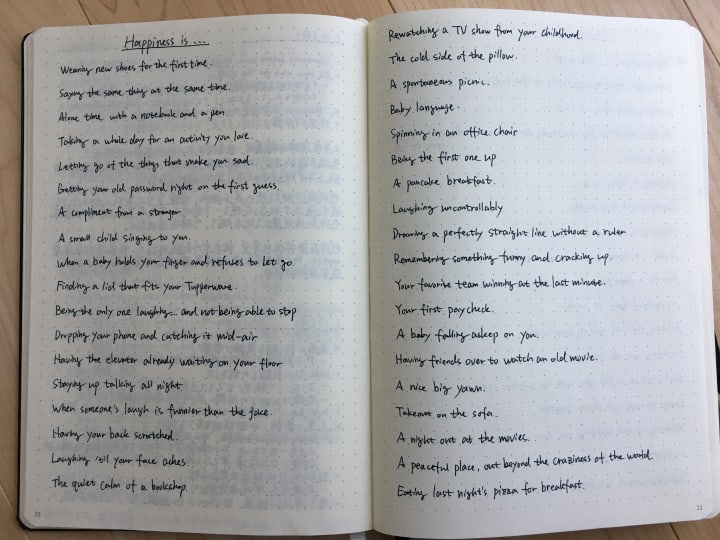 Happiness is ...
Wearing new shoes for the first time.
Saying the same thing at the same time.
Alone time with a notebook and a pen.
Taking a whole day for an activity you love.
Letting go of the things that make you sad.
Getting your old password right on the first guess.
A compliment from a stranger
A small child singing to you.
When a baby holds your finger and refuses to let go
Finding a lid that fits your Tupperware.
Being the only one laughing... and not being able to stop
Dropping your phone and catching it mid-air
Having the elevator already waiting on your floor
Staying up talking all night
When someone's laugh is funnier than the joke.
Having your back scratched.
Laughing 'til your face aches
The quiet calm of a bookshop.
21
Rewatching a TV show from your childhood.
The cold side of the pillow.
A spontaneous picnic.
Baby language.
Spinning in an office chair
Being the first one up
A pancake breakfast.
Laughing uncontrollably
Drawing a perfectly straight line without a ruler
Remembering something funny and cracking up.
Your favorite team winning at the last minute.
Your first paycheck.
A baby falling asleep on you.
Having friends over to watch an old movie.
A nice big yawn.
Takeout on the sofa.
A night out at the movies.
A peaceful place, out beyond the craziness of the world.
Eating last night's pizza for breakfast.
22